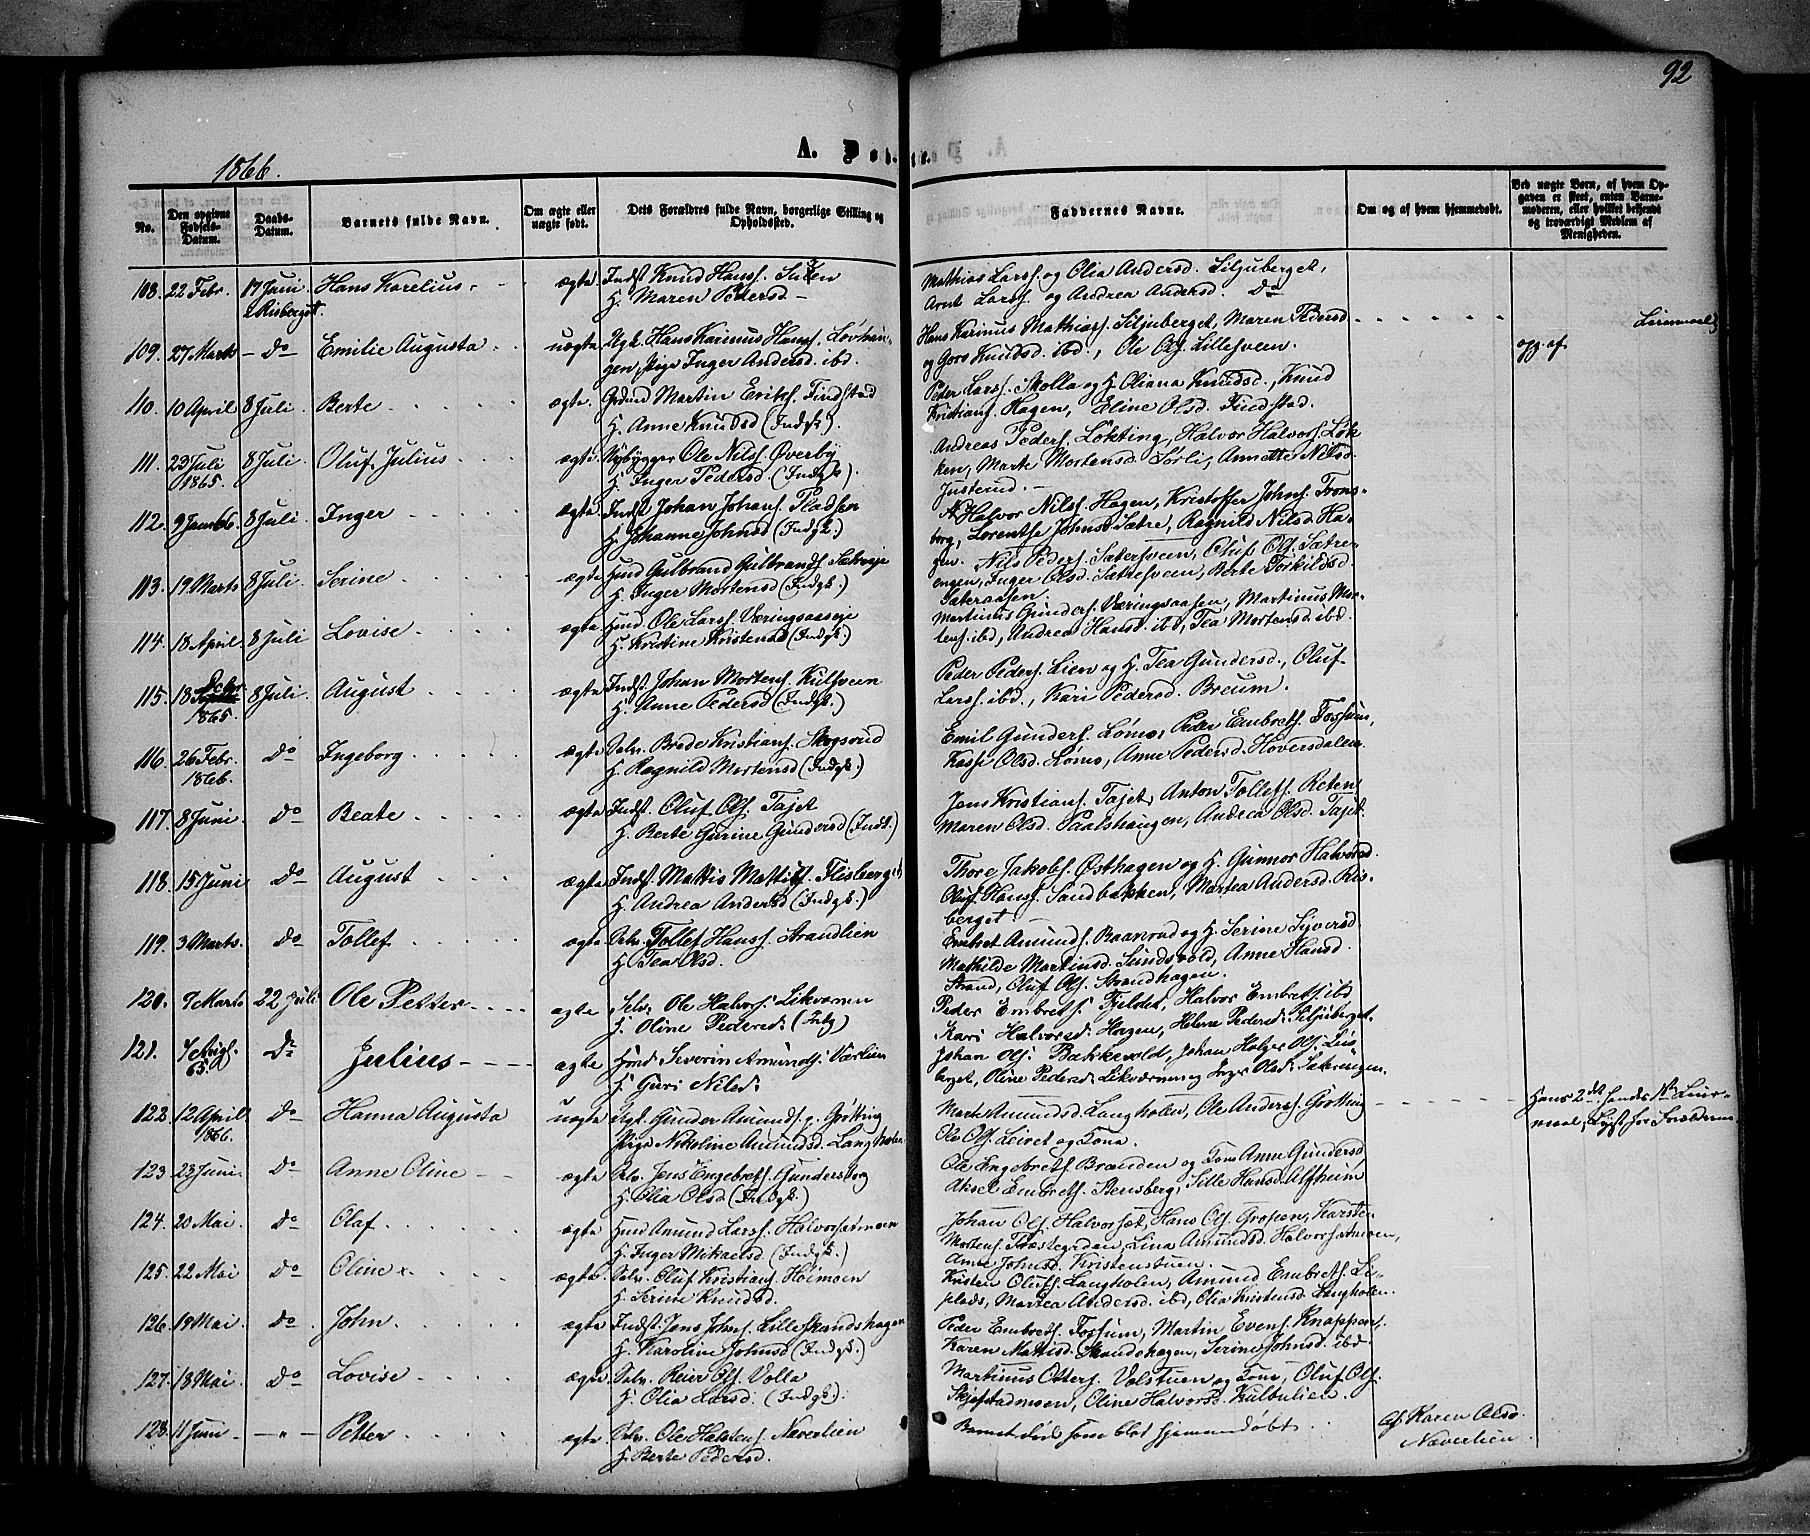 92
1866.
A. Døbte.
No.
Den opgivne Fødsels-Datum.
Daabs-Datum.
Barnets fulde Navn.
Om ægte eller uægte født.
Dets Forældres fulde Navn, borgerlige Stilling og Opholdssted.
Faddernes Navne.
Om og af hvem hjemmedøbt.
Ved uægte Børn, af hvem Opgaven er skeet, enten Barnemoderen, eller hvilket bekjendt og troværdigt Medlem af Menigheden.
108. 22 Febr. 17 Juni Hans Karelius. ægte Indst. Knud Hanss.
Risberget. H. Maren Pedersd
Mathias Larss. og Olia Andersd. Siljuberget,
Arnt Larss. og Andrea Andersd. Do
109. 27 Marts Do Emilie Augusta uægte Ugk. Hans Karinus Hanss. Løvhau-
gen, Pige Inger Andersd. ibd.
Hans Karinus Mathiass. Siljuberget, Maren Pedersd.
og Goro Knudsd. ibd., Ole Ols. Lillesveen.
opg. af
110. 10 April 8 Juli Berte ægte Grdmd Martin Eriks. Findstad
H. Anne Knudsd (Indgk).
Peder Larss. Skolla og H. Oliana Knudsd., Knud
Kristians. Hagen, Eline Olsd. Findstad.
111. 23 Juli 1865. 8 Juli Oluf Julius ægte Nybygger Ole Nilss. Øverby
H. Inger Pedersd. (Indgk).
Andreas Peders. Løkting, Halvor Halvors. Løk
ken, Marte Mortensd. Sørli, Annette Nilsd.
Justend.
112. 9 Jan 66. 8 Juli Inger ægte Indst Johan Johans. Pladsen
H. Johanne Johnsd (Indgk.)
Halvor Nilss. Hagen, Kristoffer Johns. Trons-
berg, Lorentse Johnsd. Sætre, Ragnild Nilsd. Ha-
gen.
113. 19 Marts 8 Juli Serine ægte Hmd Gulbrand Gulbrands. Sætreeje
H. Inger Mortensd (Indgk.)
Nils Peders. Satersveen, Oluf Ols. Sætre-
engen, Inger Olsd. Sætresveen, Berte Torkildsd.
Sateraasen.
114. 18 April 8 Juli Lovise ægte Hmd Ole Larss. Væringsaaseje
H. Kristine Kristensd (Indgk.)
Martinius Gunders. Væringsaasen, Martinus Mor-
tens. ibd, Andrea Hansd. ibd, Tea Mortensd. ibd.
115. 18 Octbr 1865. 8 Juli August ægte Indst. Johan Mortens. Kulsveen
H. Anne Pedersd (Indgk.)
Peder Peders. Lien og H. Tea Gundersd., Oluf
Larss. ibd., Kari Pedersd. Breum.
116. 26 Febr. 1866. Do Ingeborg ægte Selv. Brede Kristians. Skogsrud
H. Ragnild Mortensd (Indgk.)
Emil Gunders. Lømo, Peder Embrets. Fossum,
Kasse Olsd. Lømo, Anne Pedersd. Hoversdalen
117. 8 Juni Do Beate ægte Indst. Oluf Ols. Tajet
H. Berte Gurine Gundersd (Indk.)
Jens Kristians. Tajet, Anton Tollefs. Reten
Maren Olsd. Paalshaugen, Andrea Olsd. Tajet.
118. 15 Juni Do August ægte Indst. Mattis Mattiss. Flisberget
H. Andrea Andersd (Indgk.)
Thore Jakobs. Østhagen og H. Gunnor Halvorsd.
Oluf Hanss. Sandbakken, Martea Andersd. Ris-
berget.
119. 3 Marts. Do Tollef ægte Selv. Tollef Hanss. Strandlien
H. Tea Olsd.
Embret Amunds. Baanrud og H. Serine Syversd
Mathilde Martinsd. Sundsvold, Anne Hansd
Strand, Oluf Ols. Strandhagen.
120. 7 Marts 22 Juli Ole Petter ægte Selv. Ole Halvors. Likværnen
H. Oline Pedersd. (Indg)
Peder Embrets. Fjeldet, Halvor Embrets. ibd
Kari Halvorsd. Hagen, Helene Pedersd. Siljuberget.
121. 7 Augs. 65. Do Julius ægte Hmd Severin Amunds. Værlien
H. Guri Nilsd.
Johan Ols. Bækkevold, Johan Holger Ols. Lis
berget, Oline Pedersd. Likværnen og Inger Olsd. Sæteringen.
122. 12 April 1866. Do Hanna Augusta uægte Ugk. Gunder Amunds. p. Grøtting
Pige Nikoline Amundsd. Langholen
Marte Amundsd Langholen, Ole Anderss. Grøtting
Ole Ols. Leiret og Kona.
Hans 2det, hendes 1ste Leier-
maal, Lyst for Forældrene
123 23 Juni Do Anne Oline ægte Selv. Jens Engebrets. Gunderskog
H. Olia Olsd (Indgk.)
Ole Engebrets. Branden og Kona Anne Gundersd
Aksel Embrets. Stensberg, Sille Hansd. Alfheim
124. 20 Mai Do Olaf ægte Hmd Amund Larss. Halvorsætmoen
H. Inger Mikaelsd. (Indgk.)
Johan Ols. Halvorsæt, Hans Ols. Gropen, Karsten
Mortens. Præstegrden, Lina Amundsd. Halvorsætmoen,
Anne Johnsd. Kristenstuen.
125. 22 Mai Do Oline ægte Selv. Oluf Kristians. Heimoen
H. Serine Knudsd.
Kristen Olufs. Langholen, Amund Embrets. Li-
plads, Martea Andersd. ibd, Olia Kristensd. Langholen.
126. 19 Mai Do John ægte Indst. Jens Johns. Lilleskandshagen
H. Karoline Johnsd (Indgk.)
Peder Embrets. Fossum, Martin Evens. Knappen,
Karen Mattisd. Skandshagen, Serine Johnsd. ibd
127. 18 Mai Do Lovise ægte Selv. Reier Ols. Volla
H. Olia Larsd. (Indgk).
Martinus Osters. Volstuen og Kone, Oluf Ols.
Skjefstadmoen, Oline Halvorsd. Kulbulien.
128. 11 Juni " Petter ægte Selv. Ole Halstens. Næverlien
H. Berte Pedersd.
Barnet døde som blot hjemmedøbt.
Af Karen Olsd.
Næverlien.